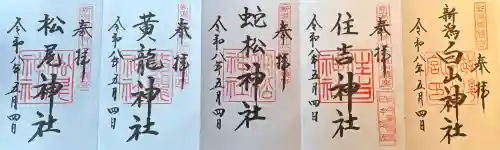 奉拝
松尾神社
令和八年五月四日
奉拝
黄龍神社
令和八年五月四日
奉拝
蛇松神社
令和八年五月四日
奉拝
住吉神社
令和八年五月四日
奉拝
新潟白山神社
令和八年五月四日